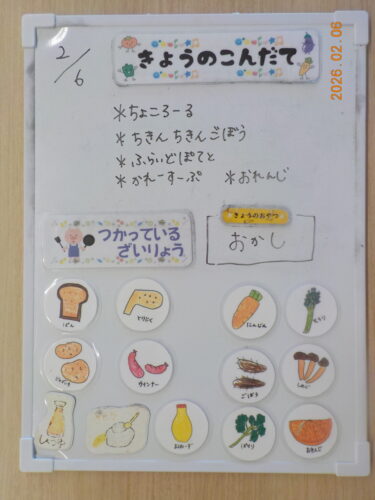 2/6
きょうのこんだて
2026.02.06
*ちょころーる
*ちきんちきんごぼう
*ふらいどぽてと
*かれーすーぷ *おれんじ
つかっている
ざいりょう
きょうのおやつ
おかし
ぱん
とりにく
にんじん
せろり
じゃがいも
ウインナー
ごぼう
しめじ
まよねーず
ぱせり
おれんじ